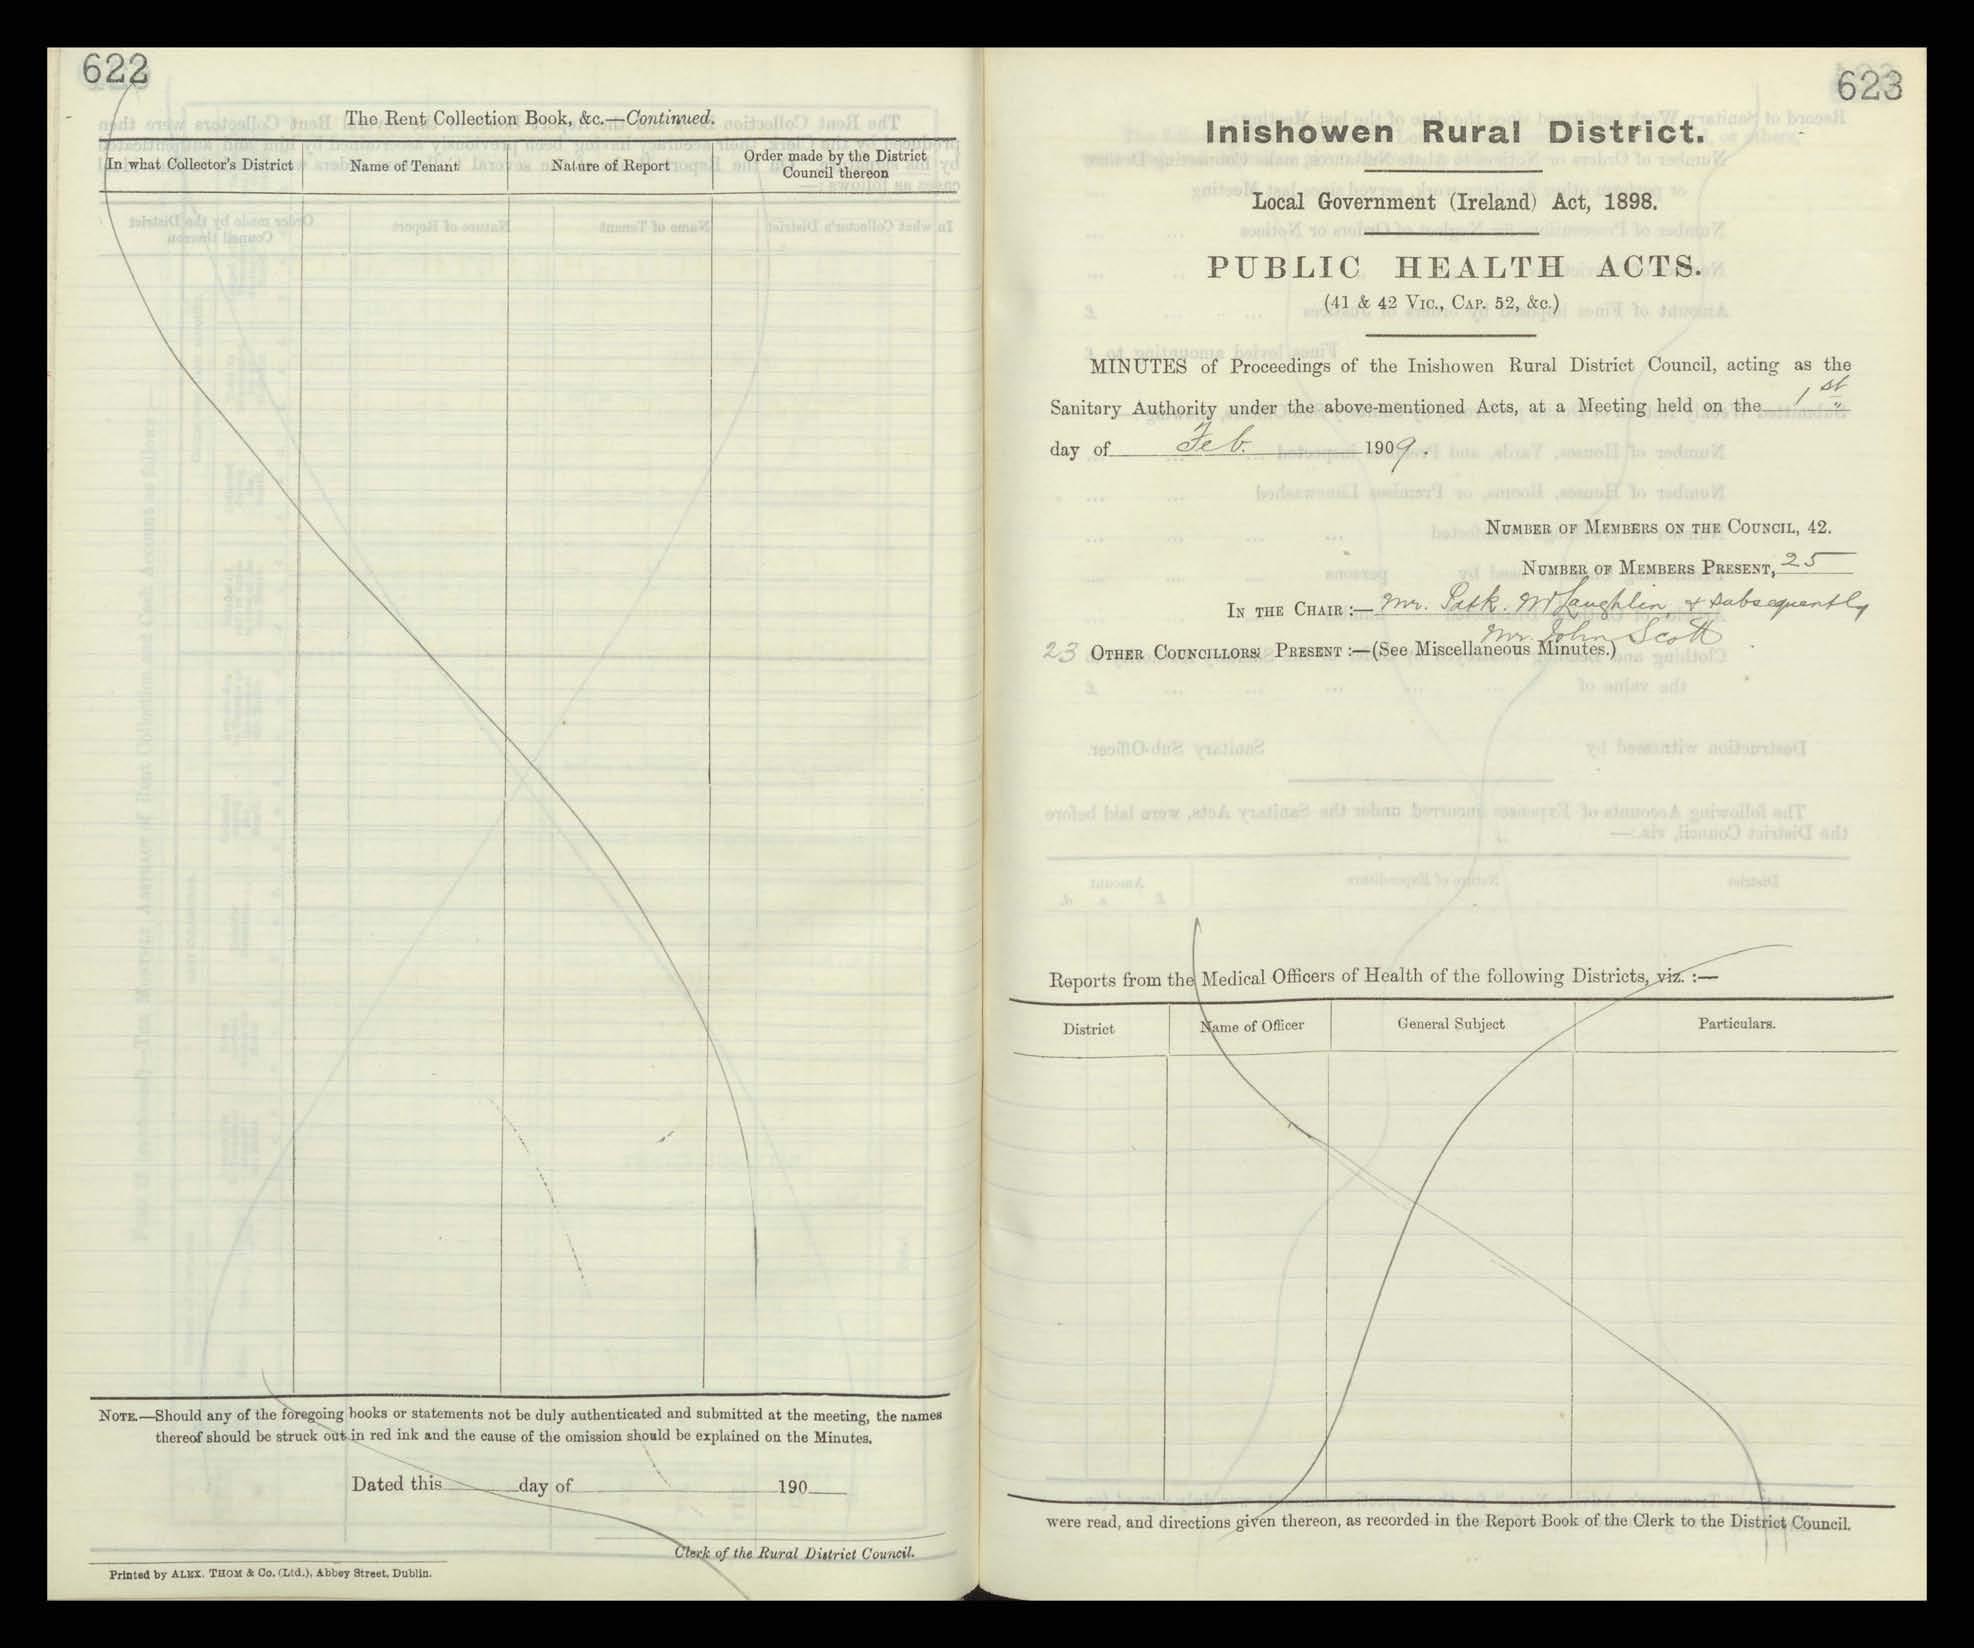 622
The Rent Collection Book, &c.—Continued.
In what Collector's District
Name of Tenant
Nature of Report
Order made by the District
Council thereon
NOTE.—Should any of the foregoing books or statements not be duly authenticated and submitted at the meeting, the names
thereof should be struck out in red ink and the cause of the omission should be explained on the Minutes.
Dated this day of 190
Clerk of the Rural District Council.
Printed by ALEX. THOM & Co. (Ltd.), Abbey Street, Dublin.
623
Inishowen Rural District.
Local Government (Ireland) Act, 1898.
PUBLIC HEALTH ACTS.
(41 & 42 VIC., CAP. 52, &c.)
MINUTES of Proceedings of the Inishowen Rural District Council, acting as the
Sanitary Authority under the above-mentioned Acts, at a Meeting held on the 1st
day of Feb. 1909.
NUMBER OF MEMBERS ON THE COUNCIL, 42.
NUMBER OF MEMBERS PRESENT, 25
IN THE CHAIR :— Mr. Patk. McLaughlin, & subsequently
Mr. John Scott
23 OTHER COUNCILLORS PRESENT :—(See Miscellaneous Minutes.)
Reports from the Medical Officers of Health of the following Districts, viz. :—
District
Name of Officer
General Subject
Particulars.
were read, and directions given thereon, as recorded in the Report Book of the Clerk to the District Council.